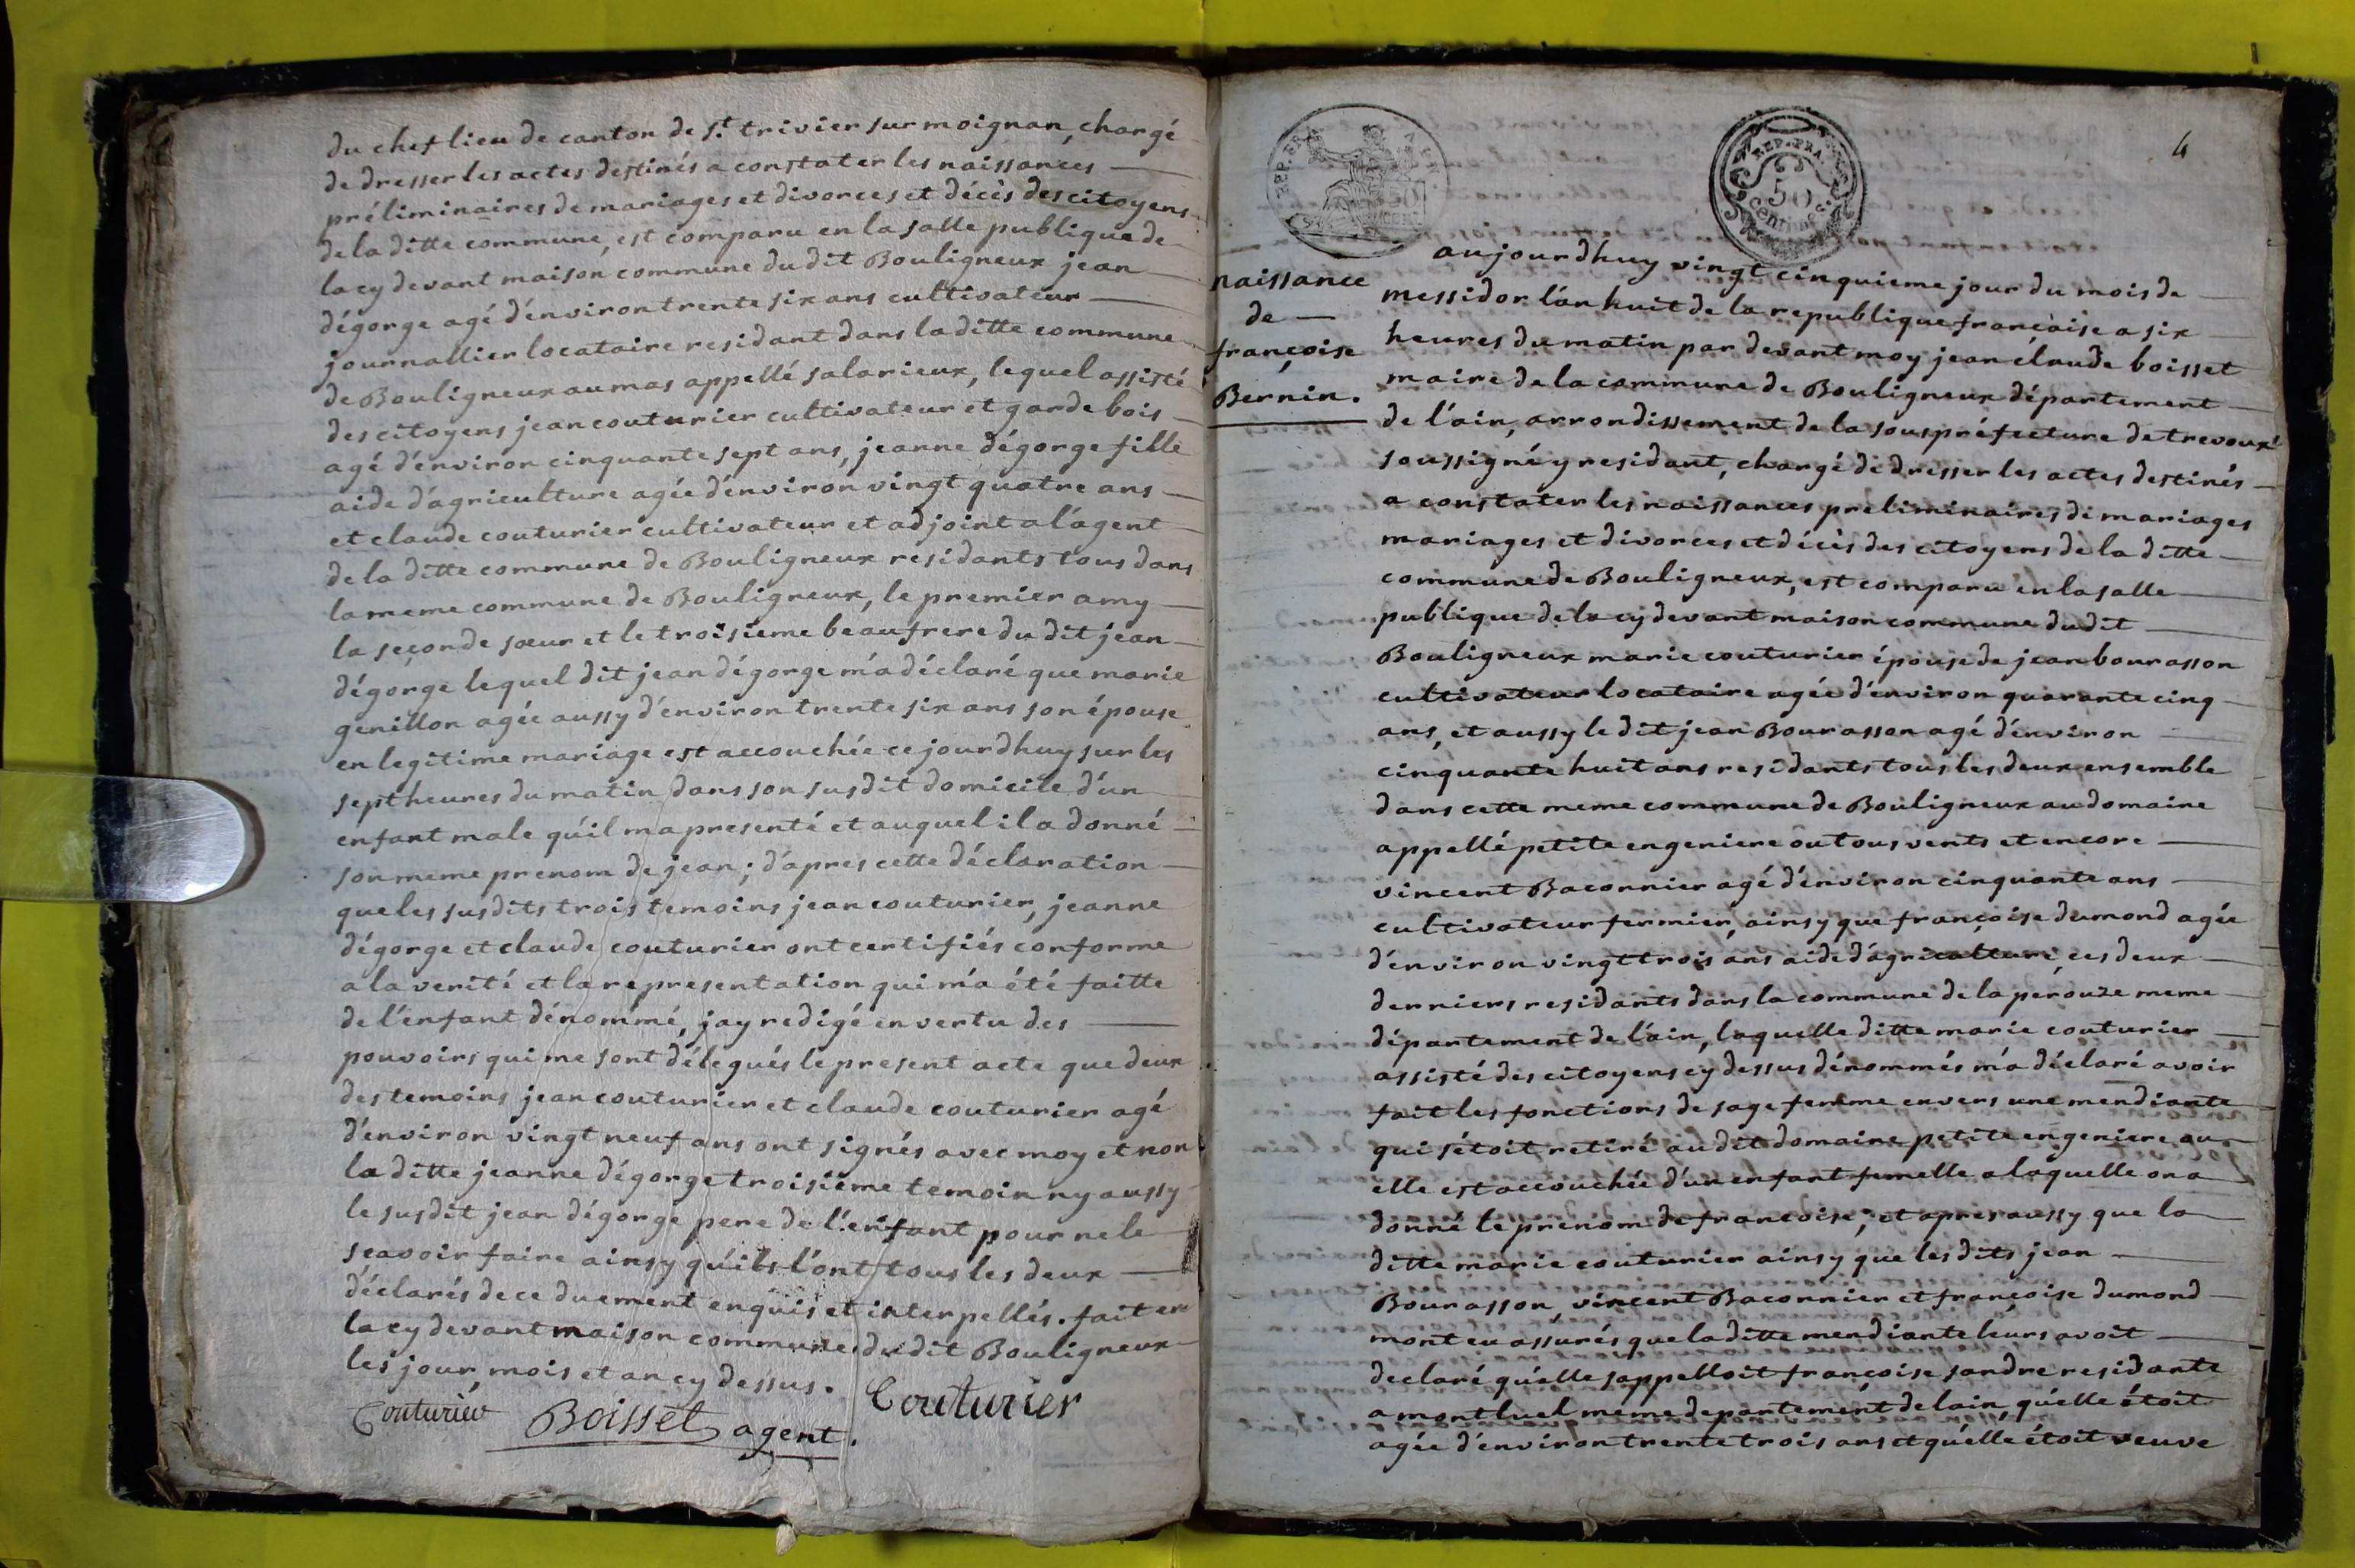 du chef lieu de canton de s.t trivier sur moignan, chargé
de dresser les actes destinés a constater les naissances
préliminaires de mariages et divorces et décès des citoyens
de la ditte commune, est comparu en la salle publique de
la cy devant maison commune du dit Bouligneux jean
dégorge agé d'environ trente six ans cultivateur
journallier locataire residant dans la ditte commune
de Bouligneux au mas appellé salarieux, lequel assisté
des citoyens jean couturier cultivateur et garde bois
agé d'environ cinquante sept ans, jeanne dégorge fille
aide d'agriculture agée d'environ vingt quatre ans
et claude couturier cultivateur et adjoint a l'agent
de la ditte commune de Bouligneux residants tous dans
la meme commune de Bouligneux, le premier amy
la seçonde sœur et le troisieme beaufrere du dit jean
dégorge lequel dit jean dégorge m'a déclaré que marie
genillon agée aussy d'environ trente six ans son épouse
en legitime mariage est accouchée ce jourdhuy sur les
sept heures du matin dans son susdit domicile d'un
enfant male qu'il ma presenté et auquel il a donné
son meme prenom de jean; d'apres cette déclaration
que les susdits trois temoins jean couturier, jeanne
dégorge et claude couturier ont certifiés conforme
a la verité et la representation qui m'a été faitte
de l'enfant dénommé, jay redigé en vertu des
pouvoirs qui me sont délegués le present acte que deux
des temoins jean couturier et claude couturier agé
d'environ vingt neuf ans ont signés avec moy et non
la ditte jeanne dégorge troisiéme temoin ny aussy
le susdit jean dégorge pere de l'enfant pour ne le
sçavoir faire ainsy qu'ils l'ont tous les deux
déclarés de ce duement enquis et interpellés. fait en
la cy devant maison commune du dit Bouligneux
les jour, mois et an cy dessus.
Couturier Boisset agent. Couturier
4
REP. FRA.
50
REP. FRA.
50
Centimes
naissance
de
françoise
Bernin.
aujourdhuy vingt cinquieme jour du mois de
messidor l'an huit de la republique française a six
heures du matin par devant moy jean claude boisset
maire de la commune de Bouligneux département
de l'ain, arrondissement de la souspréfecture de trevoux
soussigné y residant, chargé de dresser les actes destinés
a constater les naissances preliminaires de mariages
mariages et divorces et décès des citoyens de la ditte
commune de Bouligneux, est comparu en la salle
publique de la cy devant maison commune du dit
Bouligneux marie couturier épouse de jean bourasson
cultivateur locataire agée d'environ quarante cinq
ans, et aussy le dit jean Bourasson agé d'environ
cinquante huit ans residants tous les deux ensemble
dans cette meme commune de Bouligneux au domaine
appellé petite engeniere ou tous vents et encore
vincent Baconnier agé d'environ cinquante ans
cultivateur fermier, ainsy que françoise dumond agée
d'environ vingt trois ans aide d'agriculture, ces deux
derniers residants dans la commune de la perouze meme
département de l'ain, laquelle ditte marie couturier
assisté des citoyens cy dessus dénommés m'a déclaré avoir
fait les fonctions de sage femme envers une mendiante
qui s'étoit retiré au dit domaine petite engeniere ou
elle est accouchée d'un enfant femelle a laquelle on a
donné le prenom de francoise; et apres aussy que la
ditte marie couturier ainsy que les dits jean
Bourasson, vincent Baconnier et françoise dumond
mont eu assurés que la ditte mendiante leurs avoit
declaré qu'elle s'appelloit françoise sandre residante
a montluel meme departement de lain, qu'elle étoit
agée d'environ trente trois ans et qu'elle étoit veuve